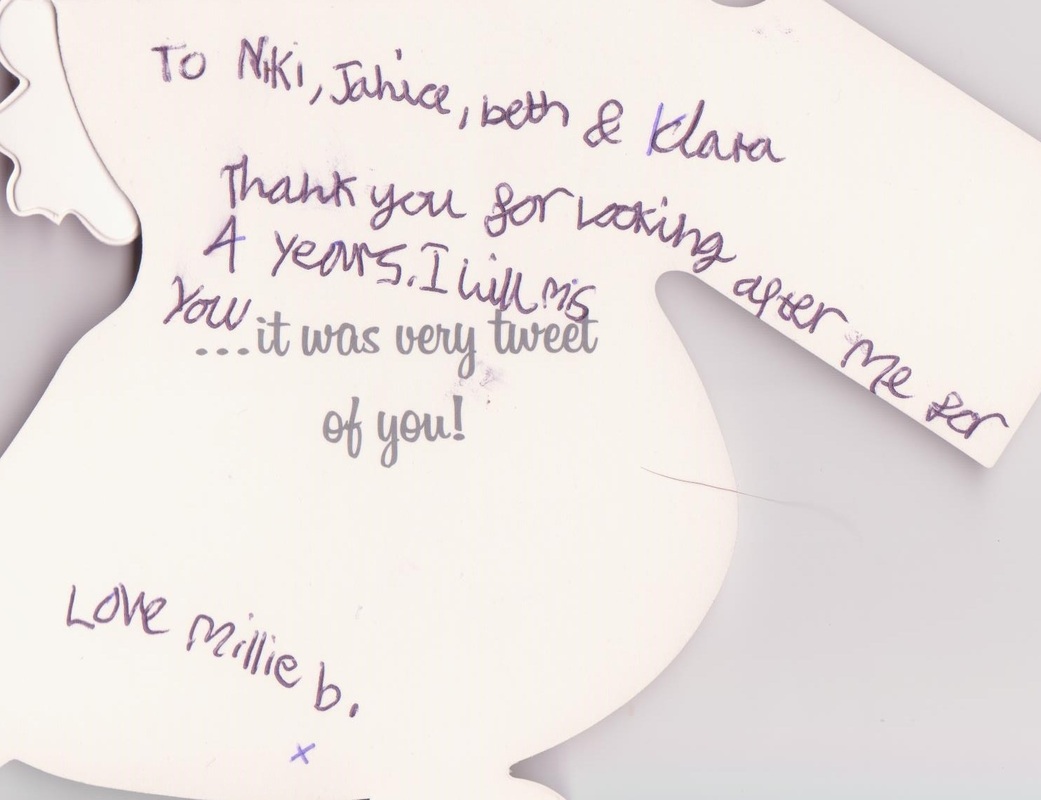 To Niki, Janice, beth & Klara
Thank you for looking after me for
4 years. I will mis
you
...it was very tweet
of you!
Love Millie b.
x